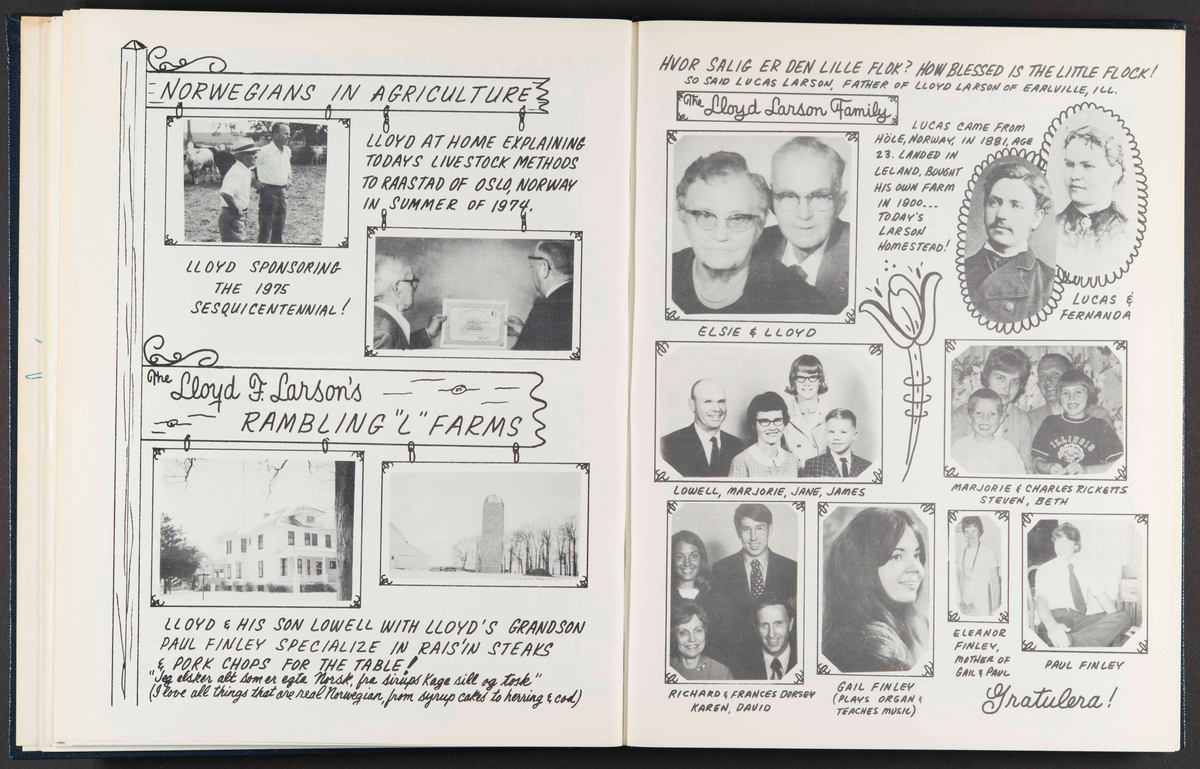 NORWEGIANS IN AGRICULTURE
LLOYD AT HOME EXPLAINING
TODAYS LIVESTOCK METHODS
TO RAASTAD, OF OSLO, NORWAY
IN SUMMER OF 1974.
LLOYD SPONSORING
THE 1975
SESQUICENTENNIAL!
The Lloyd F. Larson's
RAMBLING "L" FARMS
LLOYD & HIS SON LOWELL WITH LLOYD'S GRANDSON
PAUL FINLEY SPECIALIZE IN RAIS'N STEAKS
& PORK CHOPS FOR THE TABLE!
"Jeg elsker alt som er egte Norsk, fra sirups Kage sill og torsk"
(I love all things that are real Norwegian, from syrup cake to herring & cod)
HVOR SALIG ER DEN LILLE FLOK? HOW BLESSED IS THE LITTLE FLOCK!
SO SAID LUCAS LARSON, FATHER OF LLOYD LARSON OF EARLVILLE, ILL.
The Lloyd Larson Family
LUCAS CAME FROM
HÖLE, NORWAY, IN 1881, AGE
23. LANDED IN
LELAND, BOUGHT
HIS OWN FARM
IN 1900...
TODAY'S
LARSON
HOMESTEAD!
LUCAS &
FERNANDA
ELSIE & LLOYD
LOWELL, MARJORIE, JANE, JAMES
ILLINOIS
MARJORIE & CHARLES RICKETTS
STEVEN, BETH
RICHARD & FRANCES DORSEY
KAREN, DAVID
GAIL FINLEY
(PLAYS ORGAN &
TEACHES MUSIC)
ELEANOR
FINLEY,
MOTHER OF
GAIL & PAUL
PAUL FINLEY
Gratulera!